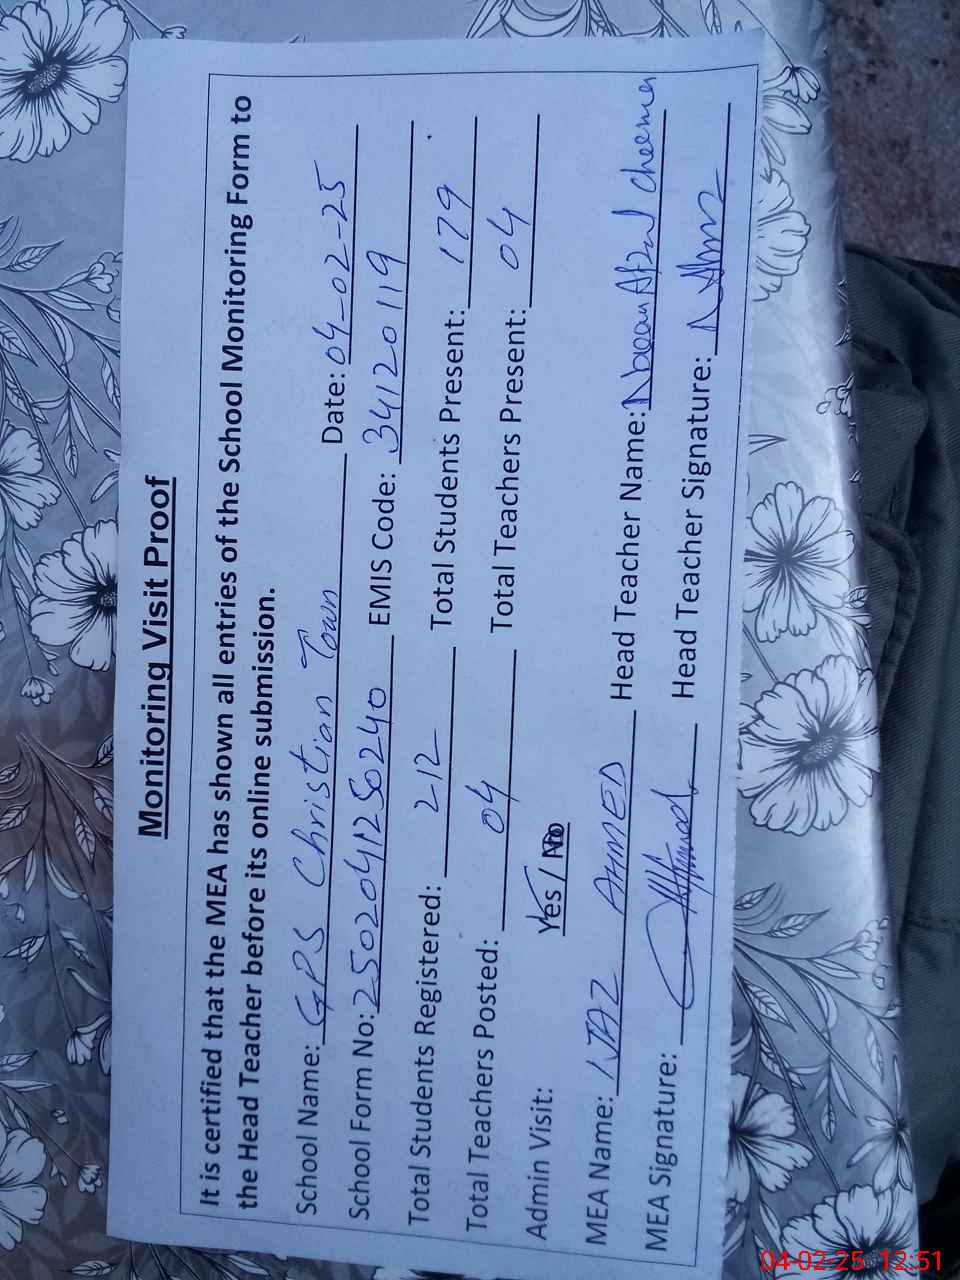 Monitoring Visit Proof
It is certified that the MEA has shown all entries of the School Monitoring Form to
the Head Teacher before its online submission.
School Name: GPS Christian Town Date: 04-02-25
School Form No: 2502041250240 EMIS Code: 34120119
Total Students Registered: 212 Total Students Present: 179
Total Teachers Posted: 04 Total Teachers Present: 04
Admin Visit: Yes / No
MEA Name: IJAZ AHMED Head Teacher Name: Afzal Cheema
MEA Signature: Head Teacher Signature:
04-02-25 12:51